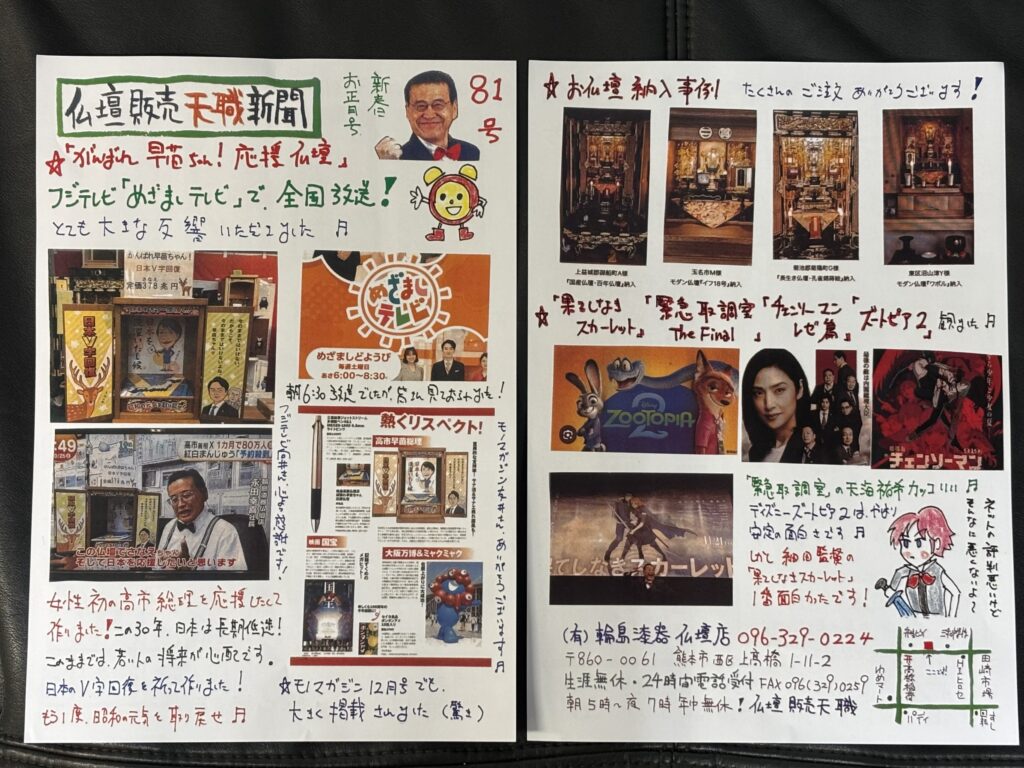 仏壇販売天職新聞
新春に
お正月号
81
号
☆「がんばれ 早苗ちゃん！応援仏壇」
フジテレビ「めざましテレビ」で、全国放送！
とても 大きな 反響 いただきました ♬
がんばれ早苗ちゃん!
日本V字回復
定価378兆円
日本V字回復
めざまし
テレビ
めざましどようび
毎週土曜日
あさ6:00～8:30
朝6:30放送でしたが、皆さん見ておられました！
:49
高市首相X 1カ月で80万人
紅白まんじゅう「予約殺到
永田幸喜
この仏壇でさなえちゃん
そして日本を応援したいと思います
フジテレビ 向井さん、心より感謝です！
熱くリスペクト!
高市早苗総理
映画 国宝
国宝
大阪万博&ミャクミャク
モノマガジン 桜井さん、ありがとうございます ♬
女性初の高市総理を応援したくて
作りました！この30年、日本は長期低迷！
このままでは、若い人の将来が心配です。
日本のV字回復を祈って作りました！
もう1度、昭和の元気を取り戻せ ♬
☆モノマガジン12月号でも、
大きく掲載されました（驚き）
☆ お仏壇納入事例 たくさんの ご注文 ありがとうございます！
上益城郡御船町A様
「国産仏壇・百年仏壇」納入
玉名市M様
モダン仏壇「イフ18号」納入
菊池郡菊陽町G様
「長生き仏壇・孔雀蒔絵」納入
東区沼山津Y様
モダン仏壇「ワポル」納入
☆「果てしなき
スカーレット」
「緊急取調室
The Final」
「チェンソーマン
レゼ篇」
「ズートピア2」観ました ♬
Disney
ZOOTOPIA
チェンソーマン
果てしなきスカーレット
「緊急取調室」の天海祐希カッコいい ♬
ディズニーズートピア2は、やはり
安定の面白さです ♬
しかし 細田監督の
「果てしなきスカーレット」
1番面白かったです！
ネットの評判悪いけど
そんなに悪くないよ～
(有) 輪島漆器仏壇店 096-329-0224
〒860-0061 熊本市西区上高橋1-11-2
生涯無休・24時間電話受付 FAX 096(329)0259
朝5時～夜7時 年中無休！仏壇販売天職
ここだよ！
高橋稲荷
田崎市場
ゆめマート
パディ